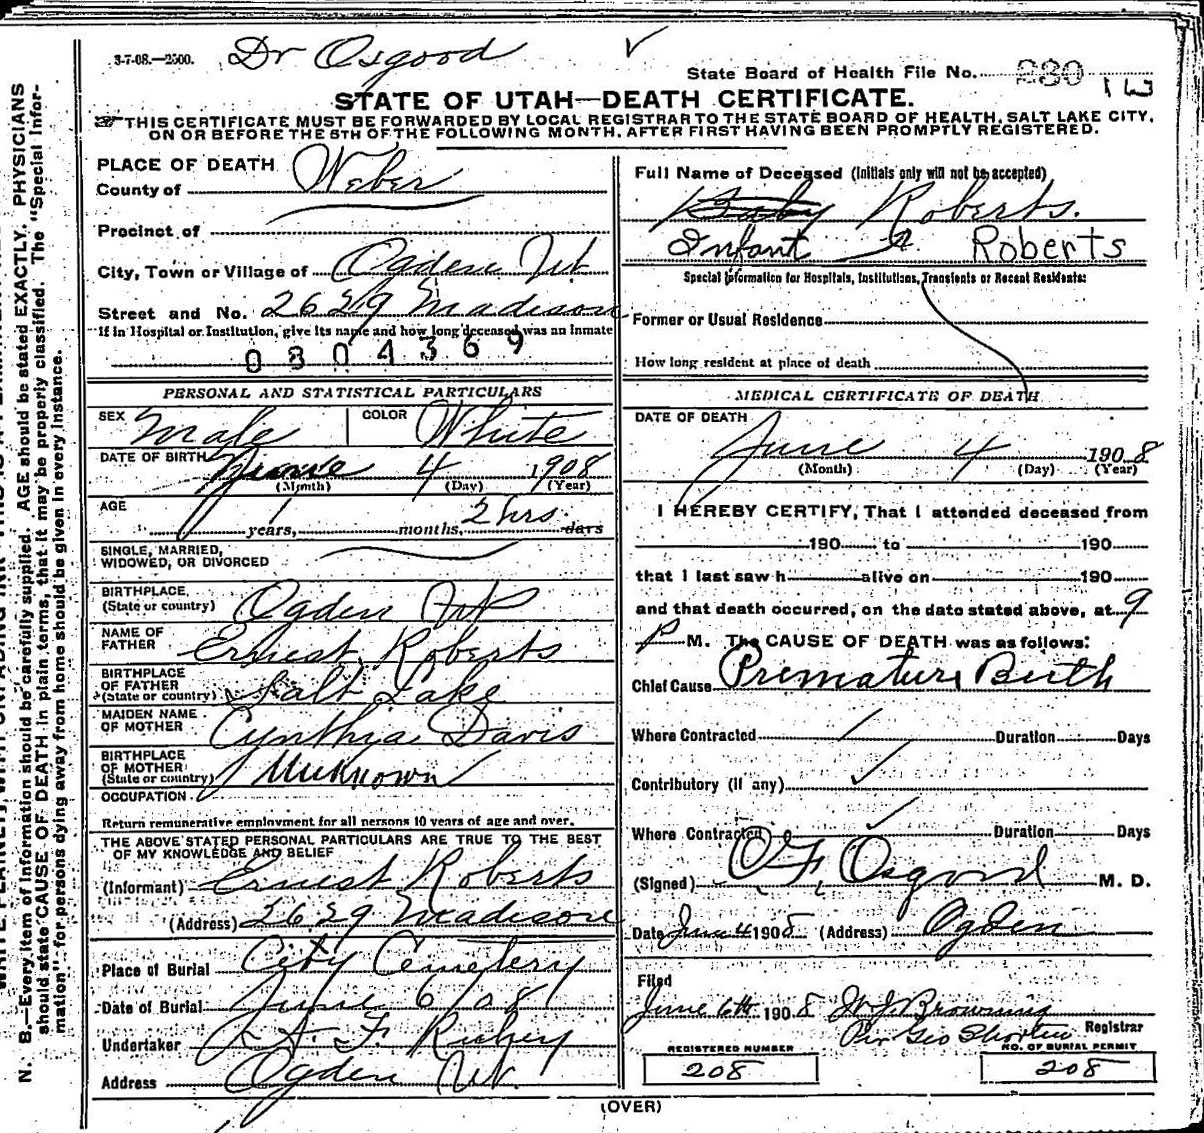 3-7-08.—2500. Dr Osgood
State Board of Health File No. 230 13
STATE OF UTAH—DEATH CERTIFICATE.
THIS CERTIFICATE MUST BE FORWARDED BY LOCAL REGISTRAR TO THE STATE BOARD OF HEALTH, SALT LAKE CITY,
ON OR BEFORE THE 5TH OF THE FOLLOWING MONTH, AFTER FIRST HAVING BEEN PROMPTLY REGISTERED.
PLACE OF DEATH
County of Weber
Precinct of
City, Town or Village of Ogden Ut.
Street and No. 2629 Madison
If in Hospital or Institution, give its name and how long deceased was an inmate
0804369
PERSONAL AND STATISTICAL PARTICULARS
SEX Male COLOR White
DATE OF BIRTH June 4 1908
(Month) (Day) (Year)
AGE
years, months, 2 hrs. days
SINGLE, MARRIED,
WIDOWED, OR DIVORCED
BIRTHPLACE
(State or country) Ogden Ut
NAME OF
FATHER Ernest Roberts
BIRTHPLACE
OF FATHER
(State or country) Salt Lake
MAIDEN NAME
OF MOTHER Cynthia Davis
BIRTHPLACE
OF MOTHER
(State or country) Unknown
OCCUPATION
Return remunerative employment for all persons 10 years of age and over.
THE ABOVE STATED PERSONAL PARTICULARS ARE TRUE TO THE BEST
OF MY KNOWLEDGE AND BELIEF
(Informant) Ernest Roberts
(Address) 2629 Madison
Place of Burial City Cemetery
Date of Burial June 6/08
Undertaker Richey
Address Ogden Ut.
Full Name of Deceased (Initials only will not be accepted)
Baby Roberts.
Infant Roberts
Special Information for Hospitals, Institutions, Transients or Recent Residents:
Former or Usual Residence
How long resident at place of death
MEDICAL CERTIFICATE OF DEATH
DATE OF DEATH
June 4 1908
(Month) (Day) (Year)
I HEREBY CERTIFY, That I attended deceased from
190 to 190
that I last saw h alive on 190
and that death occurred, on the date stated above, at 9
P M. The CAUSE OF DEATH was as follows:
Chief Cause Premature Birth
Where Contracted Duration Days
Contributory (if any)
Where Contracted Duration Days
(Signed) O F Osgood M. D.
Date June 4 1908 (Address) Ogden
Filed
June 6th 1908 Browning
Per Geo Shorten Registrar
REGISTERED NUMBER NO. OF BURIAL PERMIT
208 208
(OVER)
N. B.—Every item of information should be carefully supplied. AGE should be stated EXACTLY. PHYSICIANS
should state CAUSE OF DEATH in plain terms, that it may be properly classified. The "Special Infor-
mation" for persons dying away from home should be given in every instance.